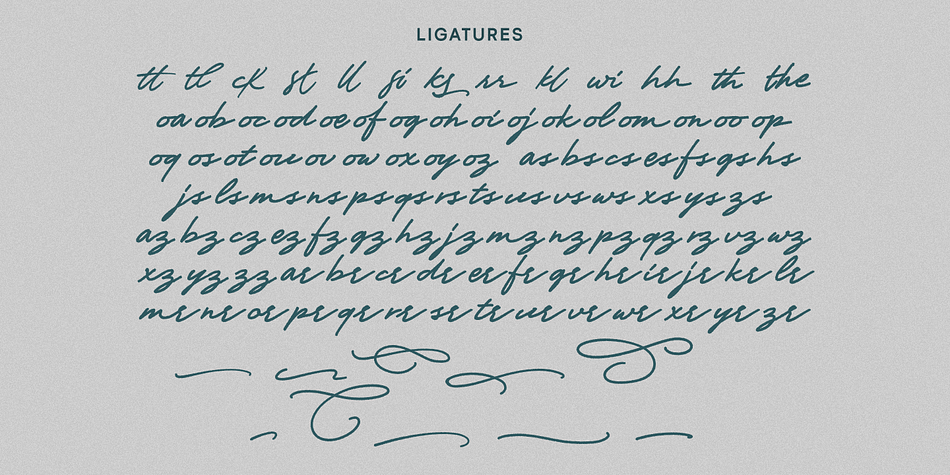 LIGATURES
tt tl ck st ll fi ks rr kl wi hh th the
oa ob oc od oe of og oh oi oj ok ol om on oo op
oq os ot ou ov ow ox oy oz as bs cs es fs gs hs
js ls ms ns ps qs rs ts us vs ws xs ys zs
az bz cz ez fz gz hz jz mz nz pz qz rz vz wz
xz yz zz ar br cr dr er fr gr hr ir jr kr lr
mr nr or pr qr rr sr tr ur vr wr xr yr zr